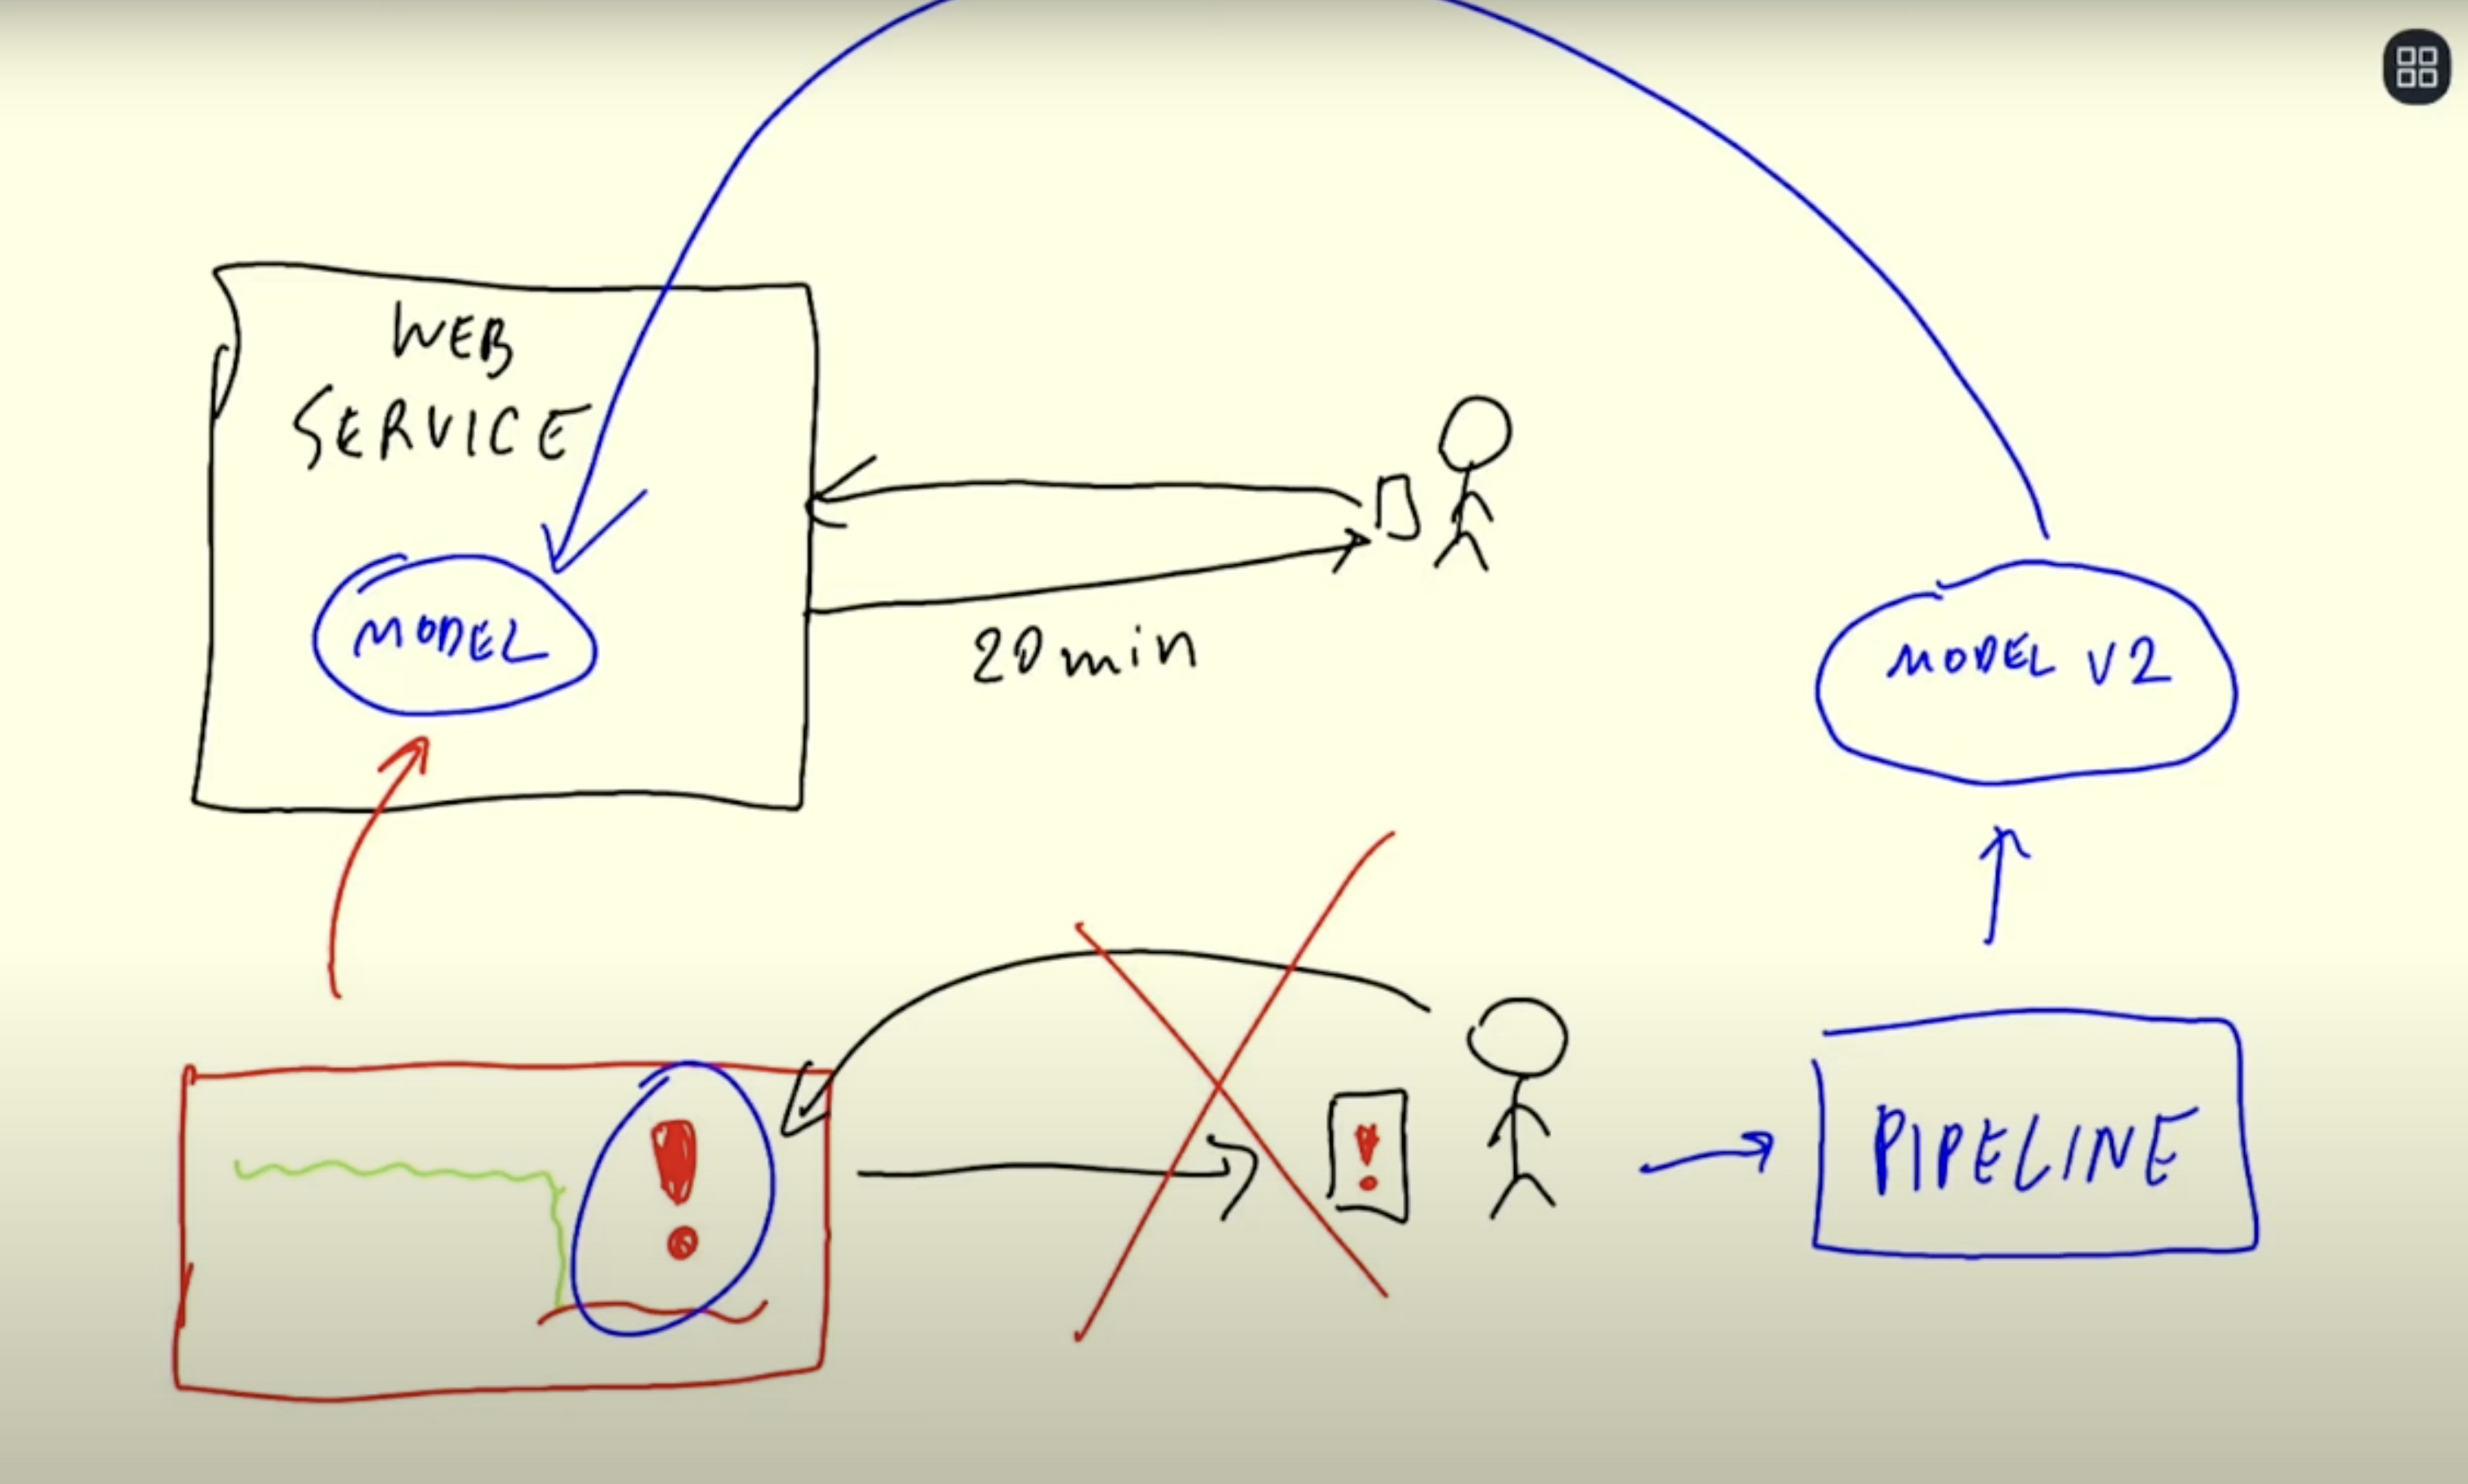 WEB
SERVICE
MODEL
20 min
MODEL V2
!
!
PIPELINE